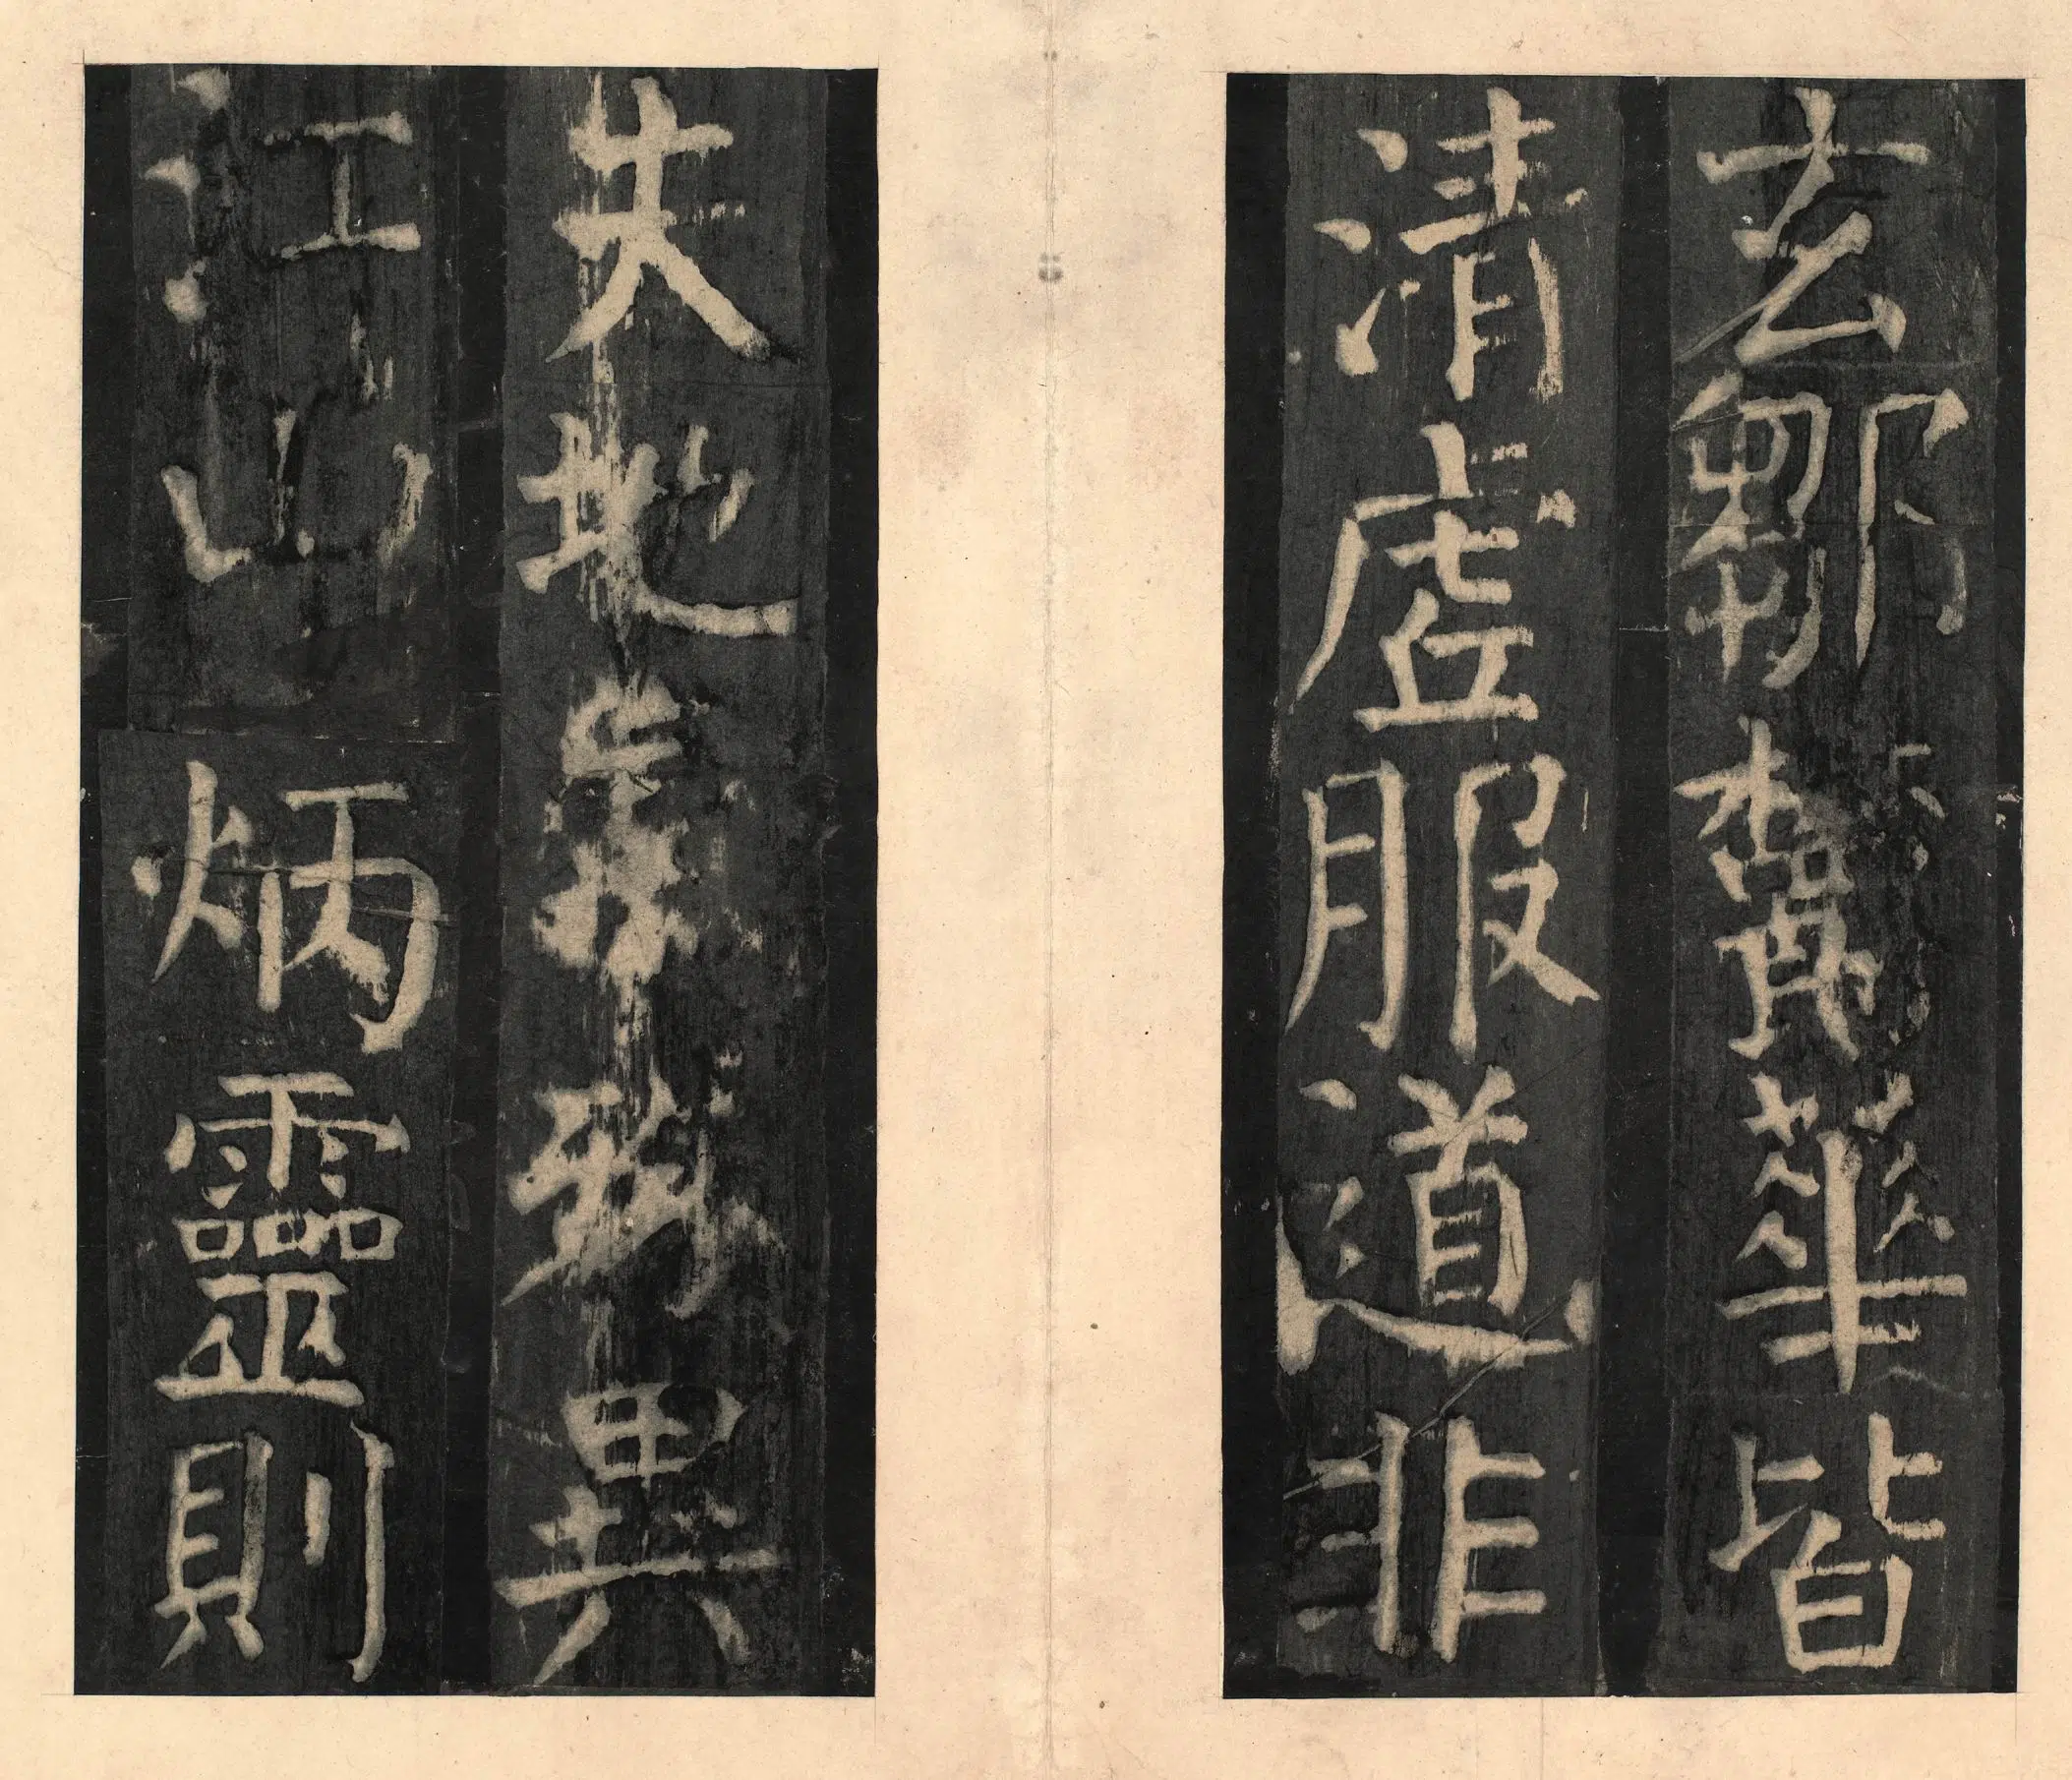 玄鄒鬱華皆
清虛服道非
夫地氣殊異
江山炳靈則